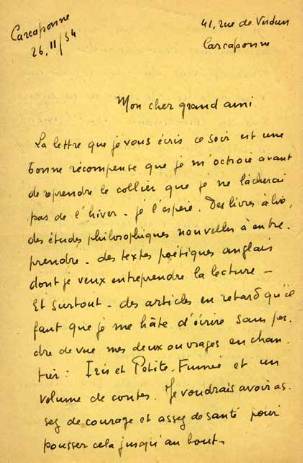 Carcassonne
26.11/54
41, rue de Verdun
Carcassonne
Mon cher grand ami
La lettre que je vous écris ce soir est une
bonne récompense que je m'octroie avant
de reprendre le collier que je ne lâcherai
pas de l'hiver - je l'espère. Des livres à lire,
des études philosophiques nouvelles à entre-
prendre - des textes poétiques anglais
dont je veux entreprendre la lecture -
Et surtout - des articles en retard qu'il
faut que je me hâte d'écrire sans per-
dre de vue mes deux ouvrages en chan-
tier : Iris et Petite-Fumée et un
volume de contes. Je voudrais avoir as-
sez de courage et assez de santé pour
pousser cela jusqu'au bout.